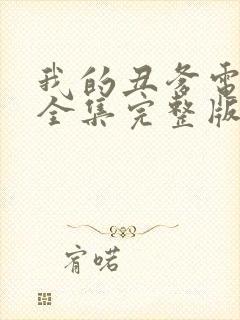 我的丑爹电
全集完整版
宥喏